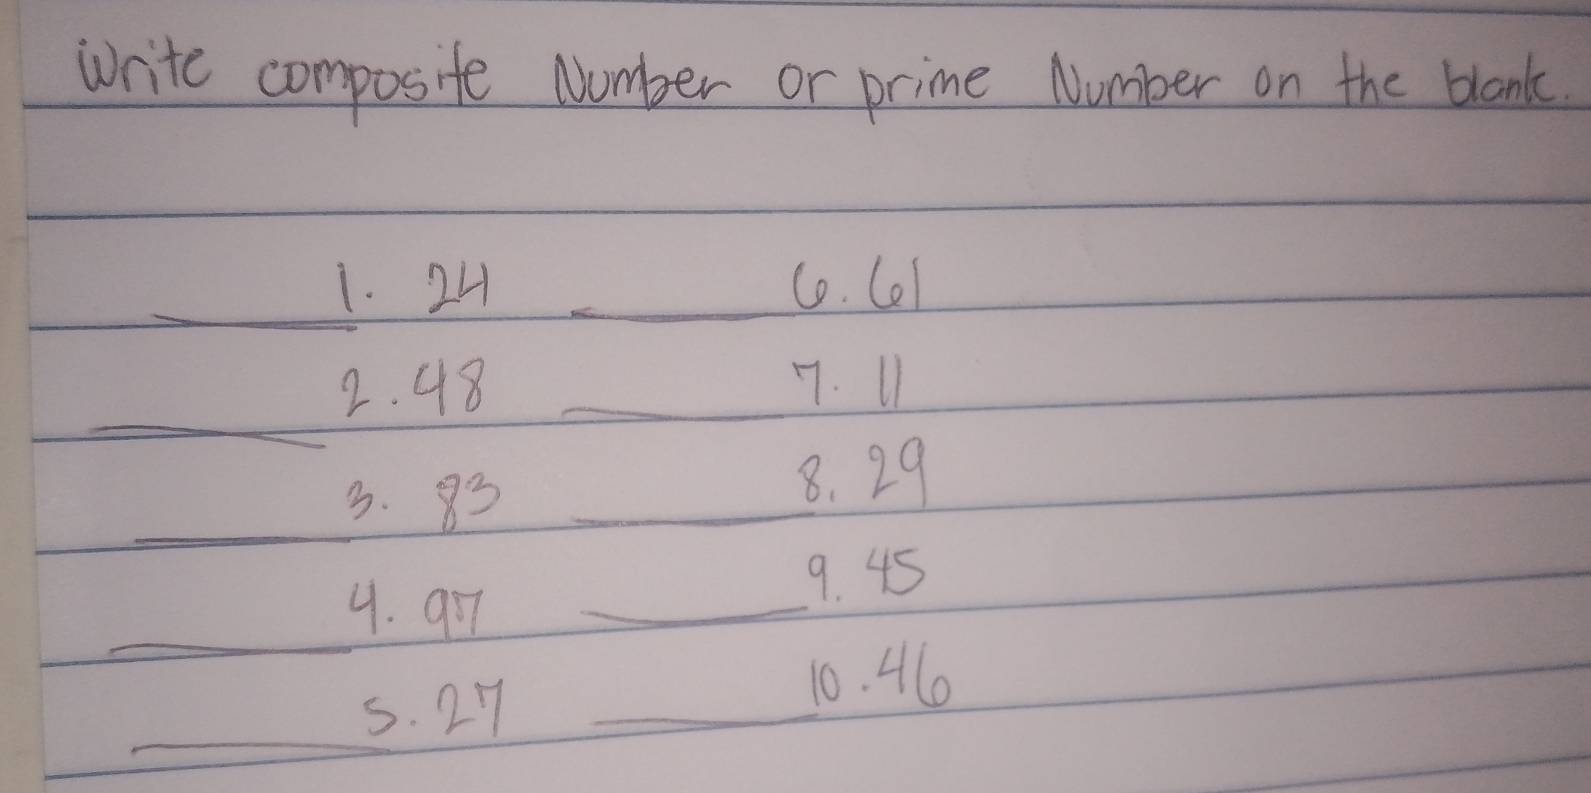 Write composite Number or prime Number on the blank.
1. 24 6. 61
2. 48 7. 11
3. 83 8. 29
4. 97 9. 45
5. 27 10. 46